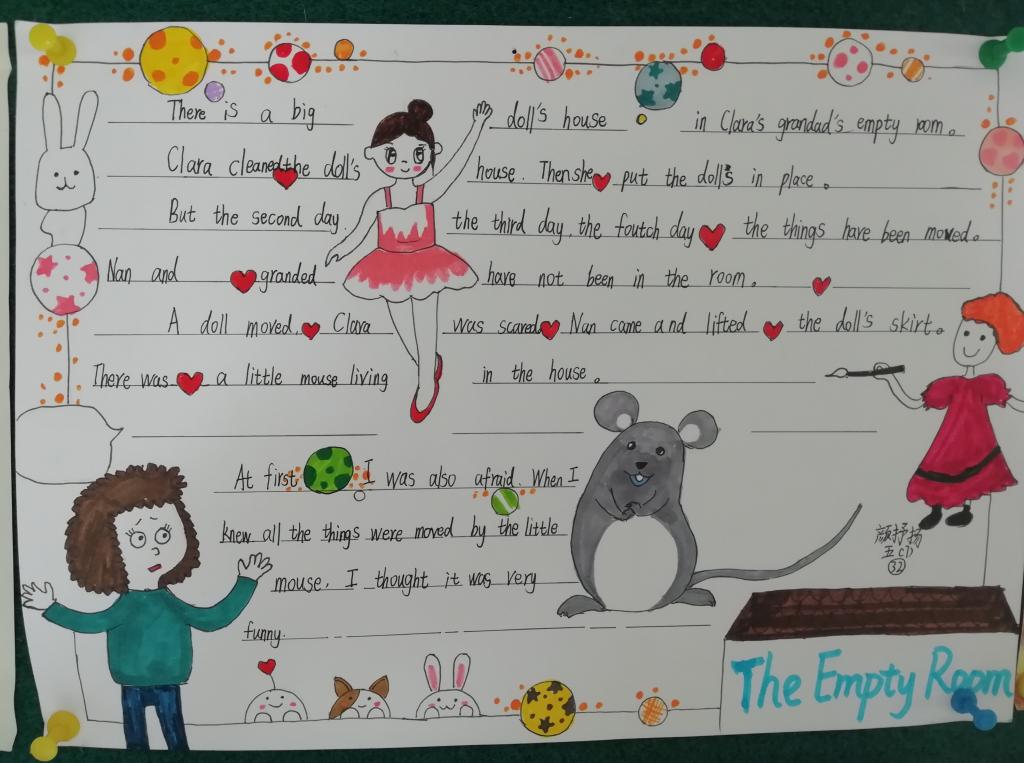 There is a big doll's house in Clara's grandad's empty room.
Clara cleaned the doll's house. Then she put the doll's in place.
But the second day. the third day, the foutch day the things have been moved.
Nan and granded have not been in the room.
A doll moved. Clara was scared. Nan came and lifted the doll's skirt.
There was a little mouse living in the house.
At first I was also afraid. When I
knew all the things were moved by the little
mouse. I thought it was very
funny.
颜抒扬
五(7)
32
The Empty Room